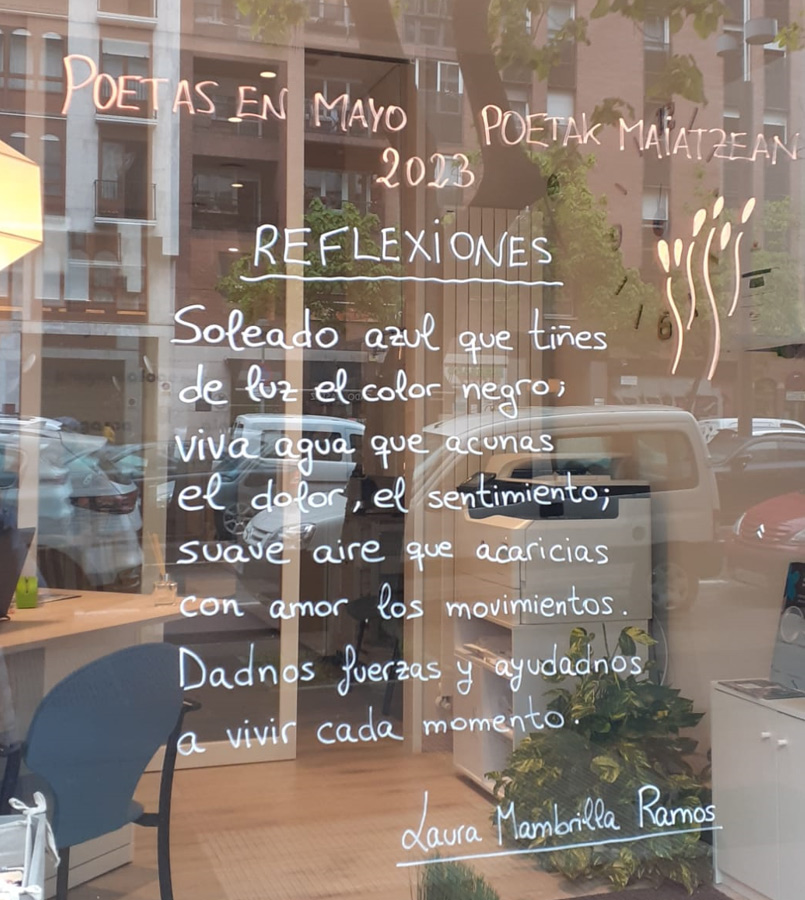 POETAS EN MAYO POETAK MAIATZEAN
2023
REFLEXIONES
Soleado azul que tiñes
de luz el color negro;
viva agua que acunas
el dolor, el sentimiento;
suave aire que acaricias
con amor los movimientos.
Dadnos fuerzas y ayudadnos
a vivir cada momento.
Laura Mambrilla Ramos